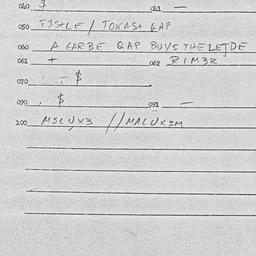 040 $ 041 —
050 TISTLE / TOKAST GAP
060 A CARBE GAP BUYS THE LEJDE
061 + 062 RIM3R
070 $
090 . $ 091 —
100 M3LUX3 // MALUX3M